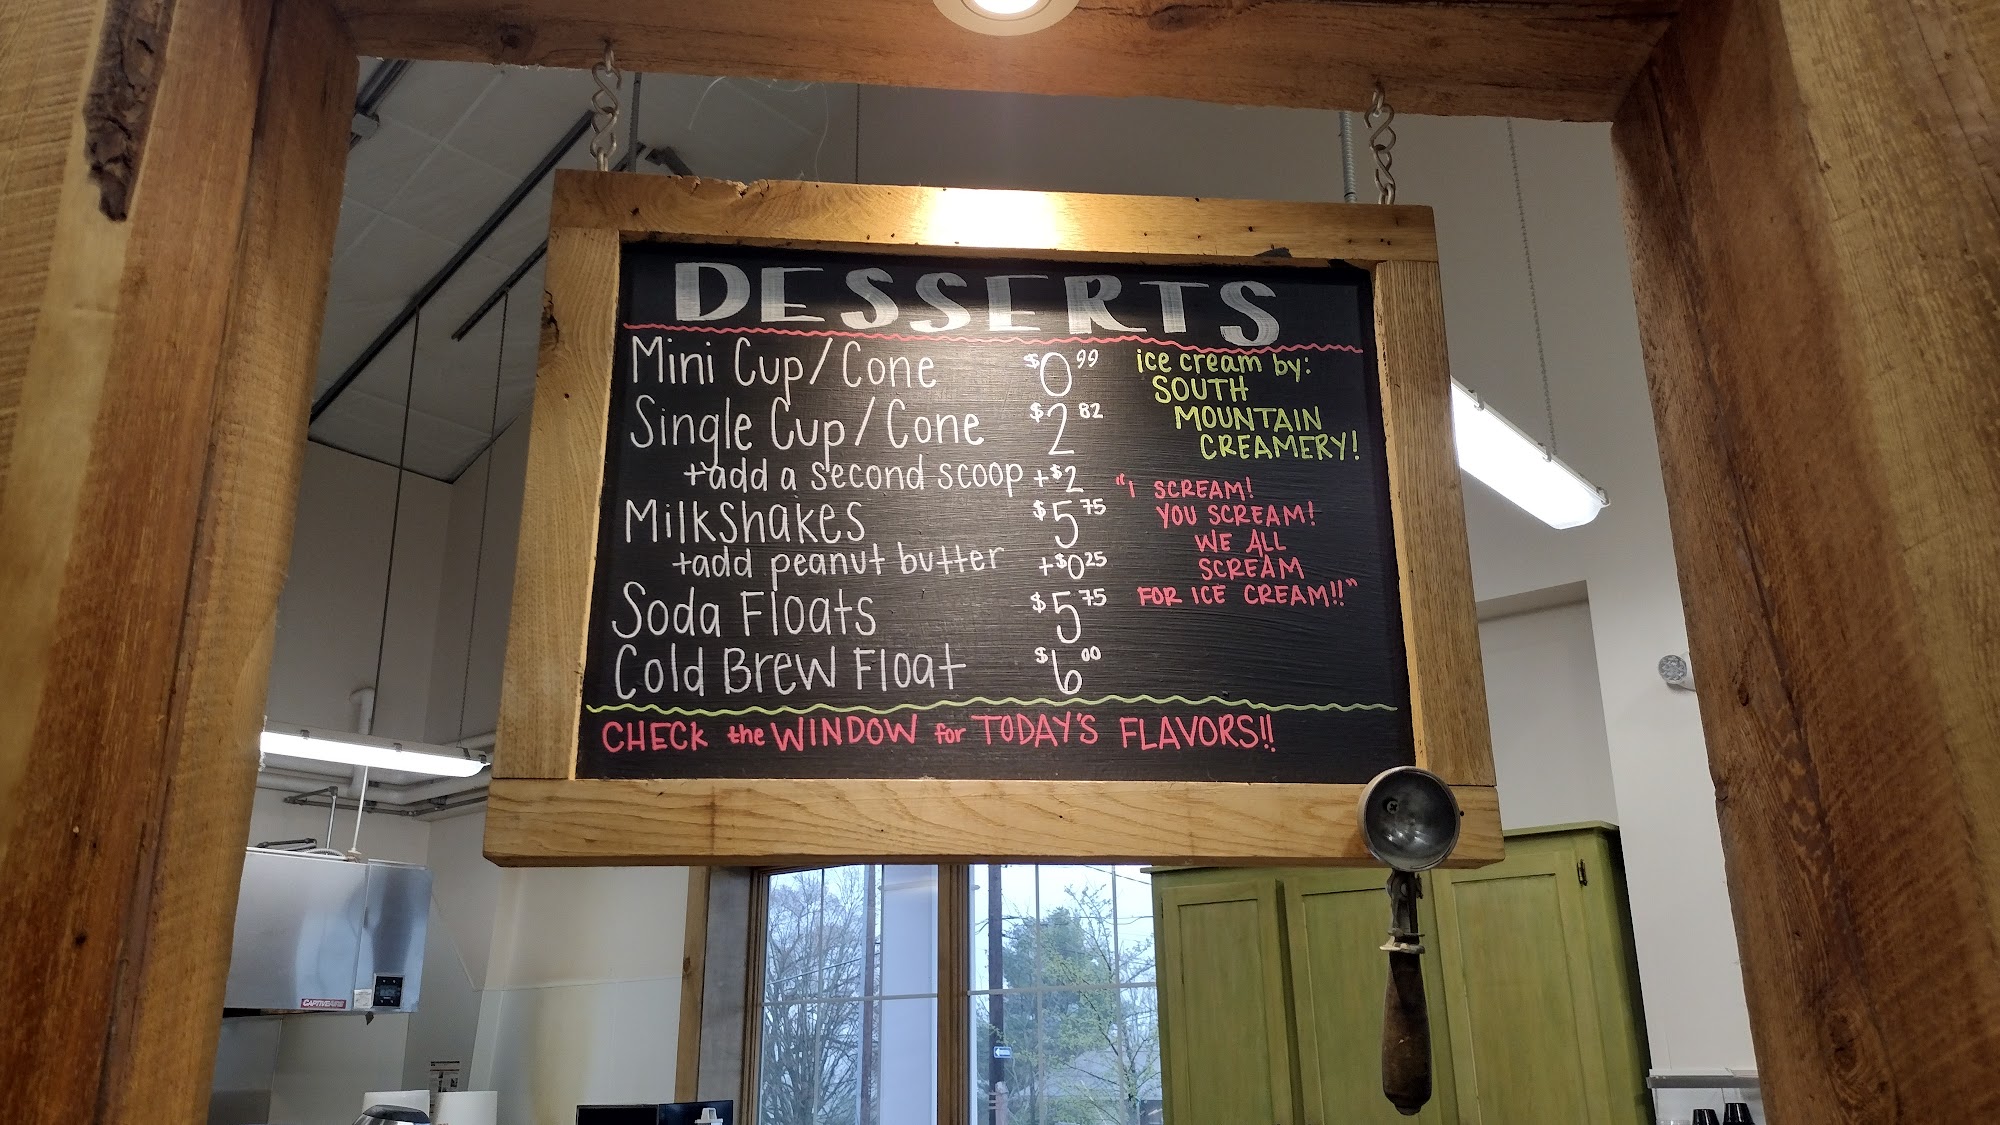 DESSERTS
Mini Cup/Cone $0.99
Single Cup/Cone $2.82
+add a second scoop +$2
Milkshakes $5.75
+add peanut butter +$0.25
Soda Floats $5.75
Cold Brew Float $6.00
ice cream by:
SOUTH
MOUNTAIN
CREAMERY!
"I SCREAM!
YOU SCREAM!
WE ALL
SCREAM
FOR ICE CREAM!!"
CHECK the WINDOW for TODAY'S FLAVORS!!
CAPTIVEAIRE